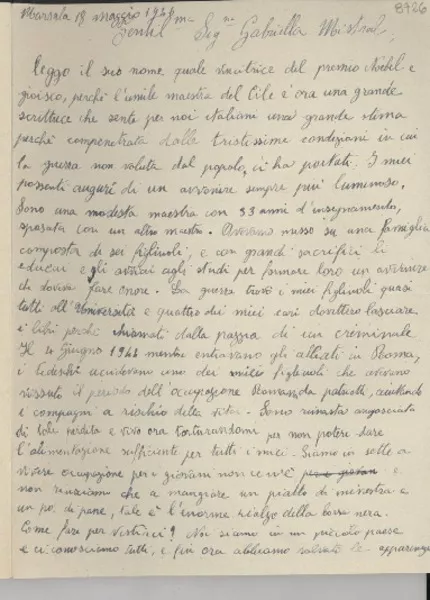 8726
Marsala 18 maggio 1946
Gentil.ma Sig.na Gabriella Mistral,
Leggo il suo nome quale vincitrice del premio Nobel e
gioisco, perché l'umile maestra del Cile è ora una grande
scrittrice che sente per noi italiani una grande stima
perché compenetrata dalle tristissime condizioni in cui
la guerra non voluta dal popolo, ci ha portati. I miei
possenti auguri di un avvenire sempre più luminoso.
Sono una modesta maestra con 33 anni d'insegnamento,
sposata con un altro maestro. Avevamo messo su una famiglia
composta da sei figliuoli, e con grandi sacrifici li
educai e gli avviai agli studi per formare loro un avvenire
che doveva fare onore. La guerra trovò i miei figliuoli quasi
tutti all'Università e quattro dei miei cari dovettero lasciare
i libri perché chiamati dalla pazzia di un criminale
Il 4 Giugno 1944 mentre entravano gli alleati in Roma,
i tedeschi uccidevano uno dei miei figliuoli che avevano
vissuto il periodo dell'occupazione Romana da patriotti, aiutando
i compagni a rischio della vita. Sono rimasta angosciata
di tale perdita e vivo ora torturandomi per non potere dare
l'alimentazione sufficente per tutti i miei. Siamo in sette a
vivere occupazione per i giovani non ce n'è e
non riusciamo che a mangiare un piatto di minestra e
un po' di pane, tale è l'enorme rialzo della borsa nera.
Come fare per vestirci? Noi siamo in un piccolo paese
e ci conosciamo tutti, e fin ora abbiamo salvato le apparenze